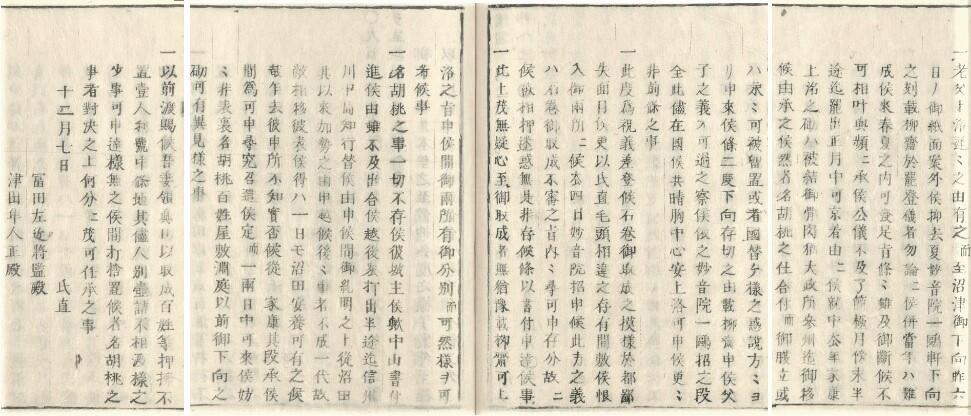 一老父上洛遅々之由有之而至沼津御下向昨六
日ノ御紙面案外候抑去夏妙音院一鷗軒下向
之刻截流齋於罷登儀者勿論ニ候併當年ハ難
成候来春夏之内可發足旨條々雖及御断候不
可相叶與頻ニ承候公儀不及了簡極月候末半
途迄罷出正月中可京着由ニ候 家康
上洛之砌ハ被結御骨肉猶大政所来州迄御
候由承之候然者名胡桃之仕合付而御腹立或
ハ永々可被留置或者國替ケ様之惑説方々ヨ
リ申来候條二度下向存切之由截流齋申候父
子之義ハ可過之察候依之妙音院一鷗招之段
全此儘在國候共時胸中心安上洛可申候更ニ
非前條之事
一此度為祝義差登候石巻御取成之摸様於都鄙
失面目候更以氏直毛頭相違之存有間敷候恨
入御両所ニ候去四日妙音院招申候此方之義
ハ石巻御取成不審之旨内々尋可申存分故ニ
候被相押迷惑無是非存候條以書付申達候事
一此上茂無疑心至于御取成者無猶豫截流齋可上
洛之旨申候間御両所有御分別而可然様ヲ可
考候事
一名胡桃之事一切不存候彼城主候歟中山書付
進候由雖不及出合候越後衆打出半途迄信州
川中島知行替候由申候間御糺明之上從沼田
其以来加勢之由申越候後々事者不成一代故
敵相移彼表候得ハ一日モ沼田安養可有之候
哉乍去彼申所不知實否候從 家康其段承候
間為可申尋召進候定而一兩日中可来候妨
々非表裏名胡桃百姓屋敷淵底以前御下向之
砌可有異見様之事
一以前渡賜候吾妻領真田以取成百姓等押拂不
置壹人利號中條地其儘ハ別請不相渡ケ様之
少事可申達様無之候間打捨置候者名胡桃之
事者對決之上何分ニ茂可仕承之事
十二月七日 氏直
冨田左近將監殿
津田隼人正殿